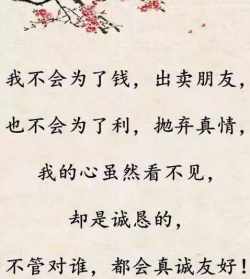 我不会为了钱，出卖朋友，
也不会为了利，抛弃真情，
我的心虽然看不见，
却是诚恳的，
不管对谁，都会真诚友好！